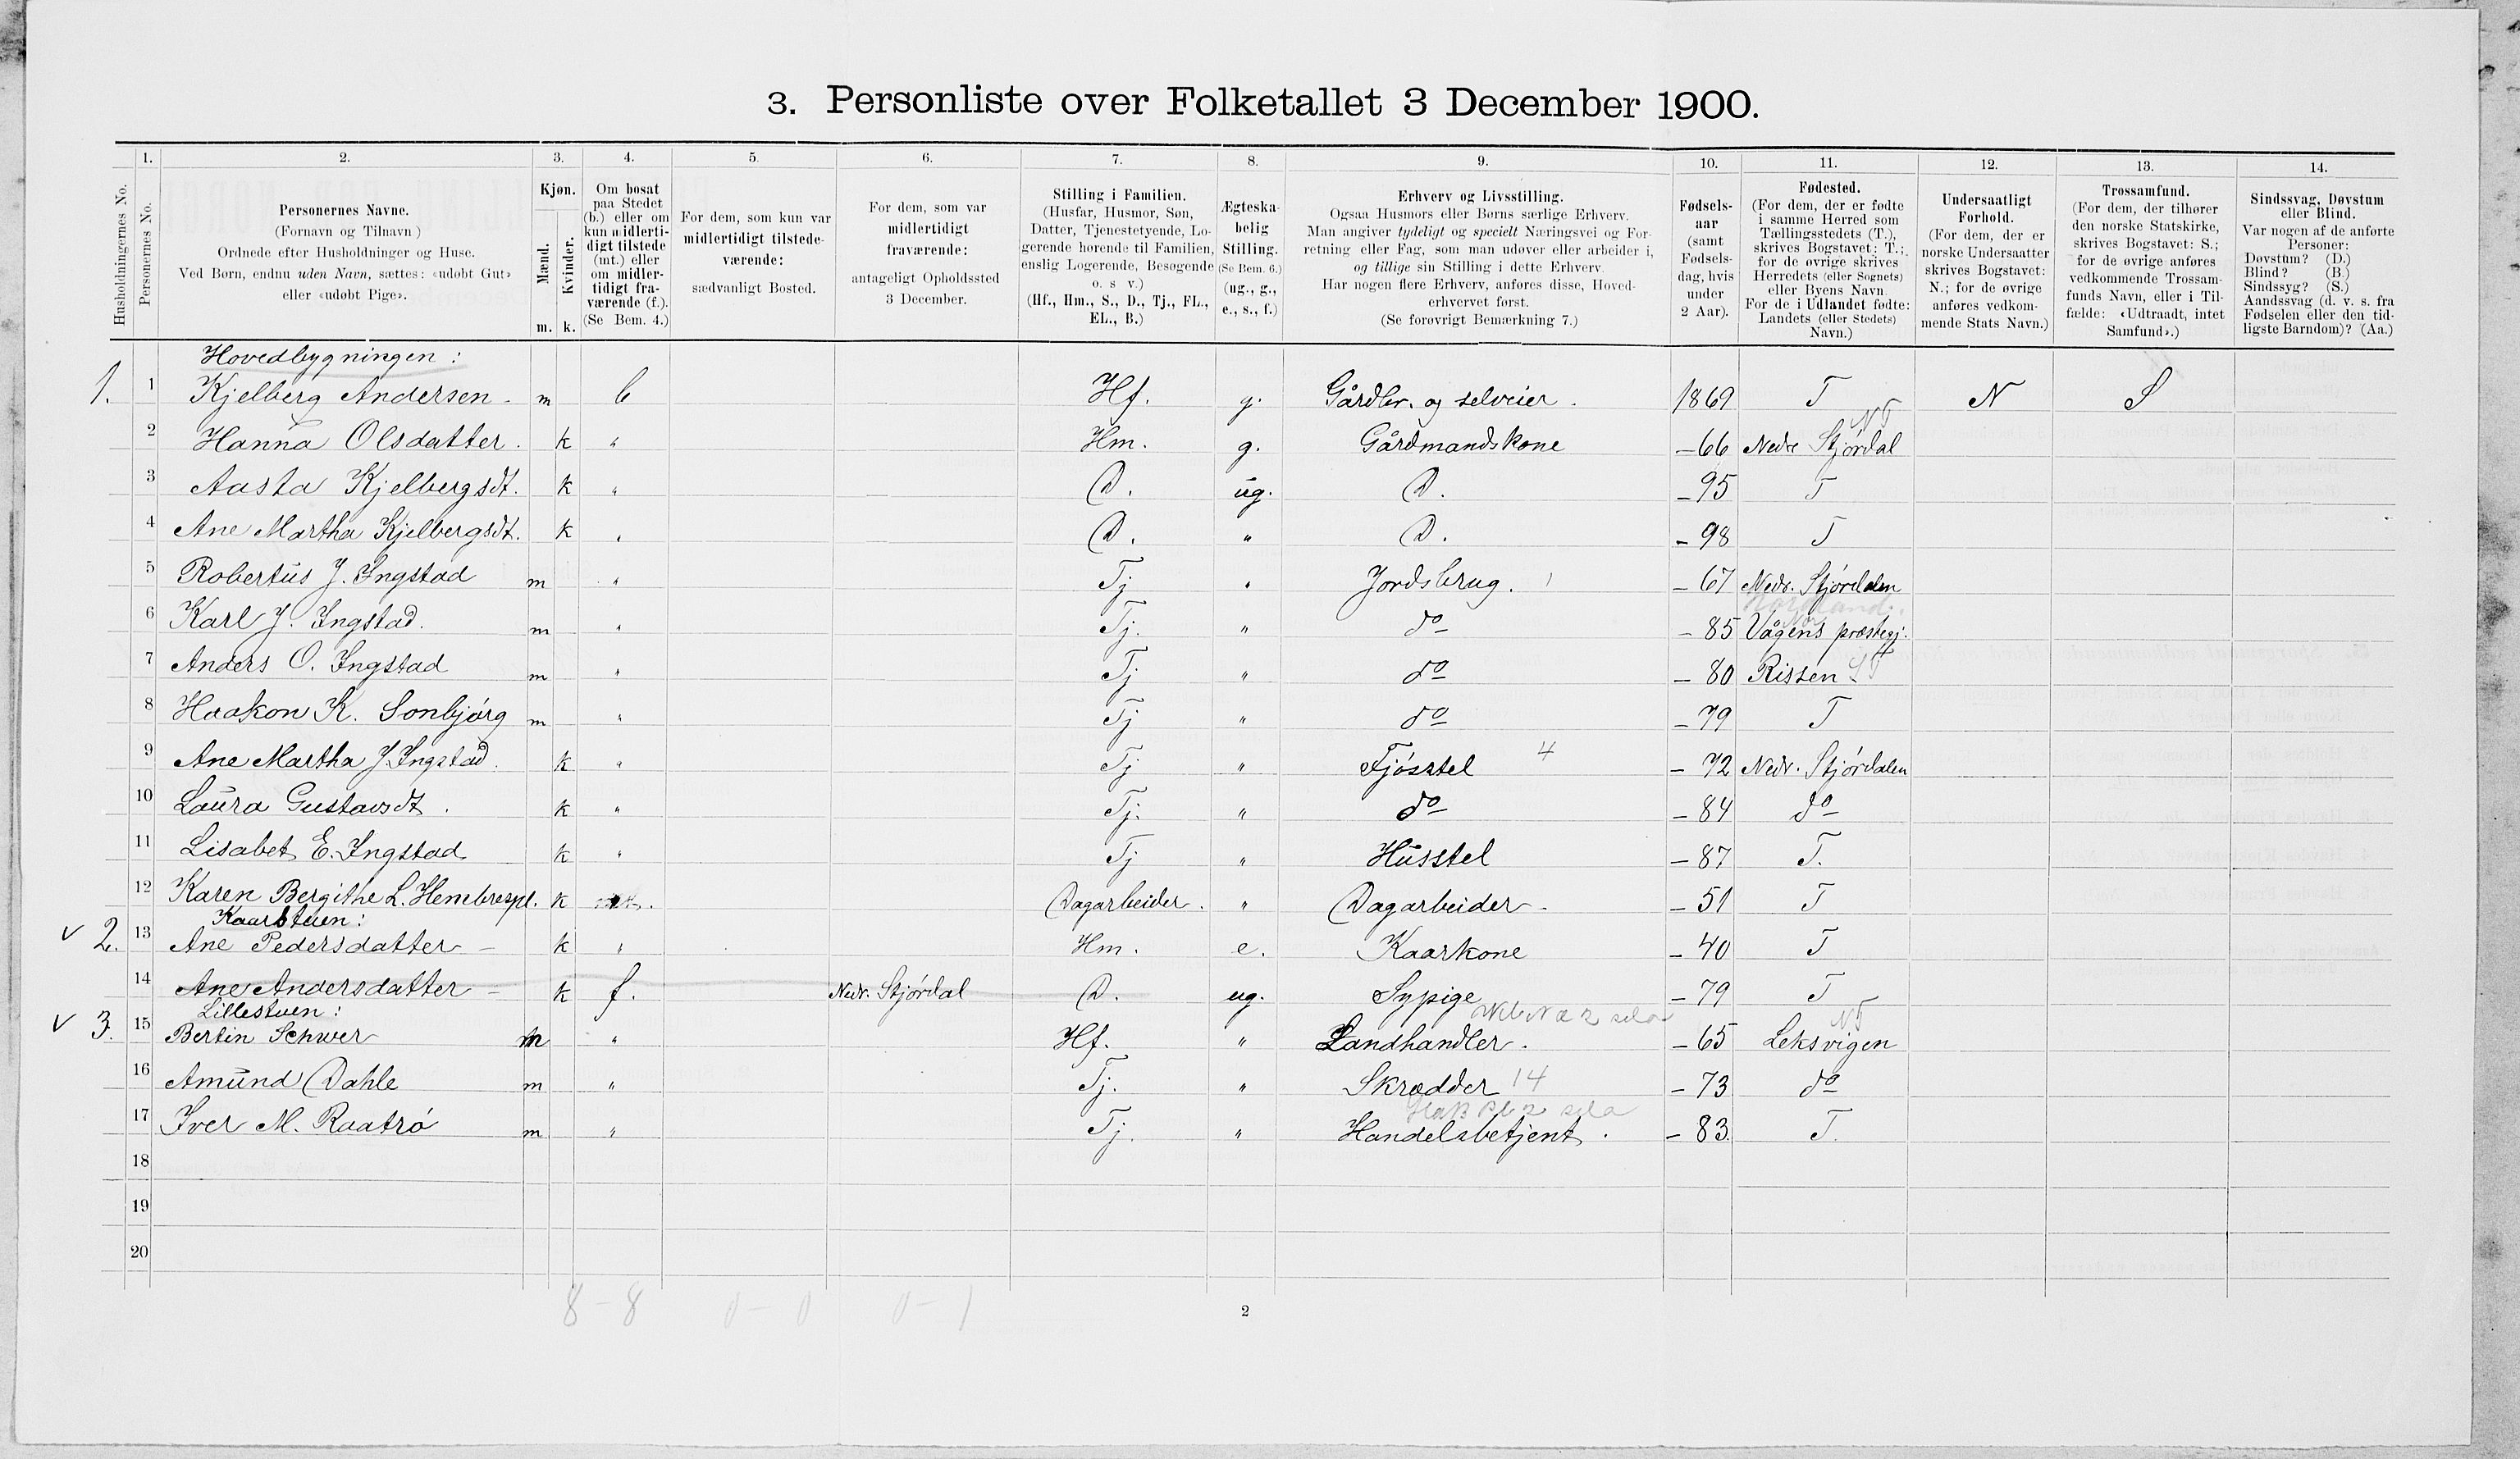 3. Personliste over Folketallet 3 December 1900.
Husholdningernes No.
1.
Personernes No.
2.
Personernes Navne.
(Fornavn og Tilnavn.)
Ordnede efter Husholdninger og Huse.
Ved Børn, endnu uden Navn, sættes: «udøbt Gut»
eller «udøbt Pige».
3.
Kjøn.
Mænd.
Kvinder.
m. k.
4.
Om bosat
paa Stedet
(b.) eller om
kun midlerti-
digt tilstede
(mt.) eller
om midler-
tidigt fra-
værende (f.).
(Se Bem. 4.)
5.
For dem, som kun var
midlertidigt tilstede-
værende:
sædvanligt Bosted.
6.
For dem, som var
midlertidigt
fraværende:
antageligt Opholdssted
3 December.
7.
Stilling i Familien.
(Husfar, Husmor, Søn,
Datter, Tjenestetyende, Lo-
gerende hørende til Familien,
enslig Logerende, Besøgende
o. s v.)
(Hf., Hm., S., D., Tj., FL.,
EL., B.)
8.
Ægteska-
belig
Stilling.
(Se Bem. 6.)
(ug., g.,
e., s., f.)
9.
Erhverv og Livsstilling.
Ogsaa Husmors eller Børns særlige Erhverv.
Man angiver tydeligt og specielt Næringsvei og For-
retning eller Fag, som man udøver eller arbeider i,
og tillige sin Stilling i dette Erhverv.
Har nogen flere Erhverv, anføres disse, Hoved-
erhvervet først.
(Se forøvrigt Bemærkning 7.)
10.
Fødsels-
aar
(samt
Fødsels-
dag, hvis
under
2 Aar).
11.
Fødested.
(For dem, der er fødte
i samme Herred som
Tællingsstedets (T.),
skrives Bogstavet: T.;
for de øvrige skrives
Herredets (eller Sognets)
eller Byens Navn.
For de i Udlandet fødte:
Landets (eller Stedets)
Navn.)
12.
Undersaatligt
Forhold.
(For dem, der er
norske Undersaatter
skrives Bogstavet:
N.; for de øvrige
anføres vedkom-
mende Stats Navn.)
13.
Trossamfund.
(For dem, der tilhører
den norske Statskirke,
skrives Bogstavet: S.;
for de øvrige anføres
vedkommende Trossam-
funds Navn, eller i Til-
fælde: «Udtraadt, intet
Samfund».)
14.
Sindssvag, Døvstum
eller Blind.
Var nogen af de anførte
Personer:
Døvstum? (D.)
Blind? (B.)
Sindssyg? (S.)
Aandssvag (d. v. s. fra
Fødselen eller den tid-
ligste Barndom)? (Aa.)
Hovedbygningen:
1. 1 Kjelberg Andersen m b Hf. g. Gårdbr. og selveier. 1869 T N S
NT
2 Hanna Olsdatter. k " Hm. g. Gårdmandskone -66 Nedre Stjórdal
3 Aasta Kjelbergsdt. k " D. ug. D. -95 T
4 Ane Martha Kjelbergsdt. k " D. " D. -98 T
5 Robertus J. Ingstad m " Tj " Jordsbrug. 1 -67 Nedr. Stjórdalen
Nordland.
6 Karl J. Ingstad. m " Tj. " do -85 Vågens præstegj.
7 Anders O. Ingstad m " Tj " do -80 Rissen ST
8 Haakon K. Sonbjórg m " Tj " do -79 T
9 Ane Martha J. Ingstad. k " Tj " Fjósstel 4 -72 Nedr. Stjórdalen
10 Laura Gustavsdt. k " Tj. " do -84 do
11 Lisabet E. Ingstad k " Tj " Husstel -87 T.
12 Karen Bergithe L. Hembrespl. k Dagarbeider. " Dagarbeider. -51 T
Kaarstuen:
v 2. 13 Ane Pedersdatter k " Hm. e. Kaarkone -40 T
14 Ane Andersdatter k f. Nedr. Stjórdal D. ug. Sypige -79 T
Lillestuen:
NT
v 3. 15 Bertin Schwer m " Hf. " Landhandler. -65 Leksvigen
16 Amund Dahle m " Tj. " Skrædder 14 -73 do
17 Iver M. Raatró m " Tj. " Handelsbetjent. -83. T.
18
19
20
8 - 8 0 - 0 0 - 1
2